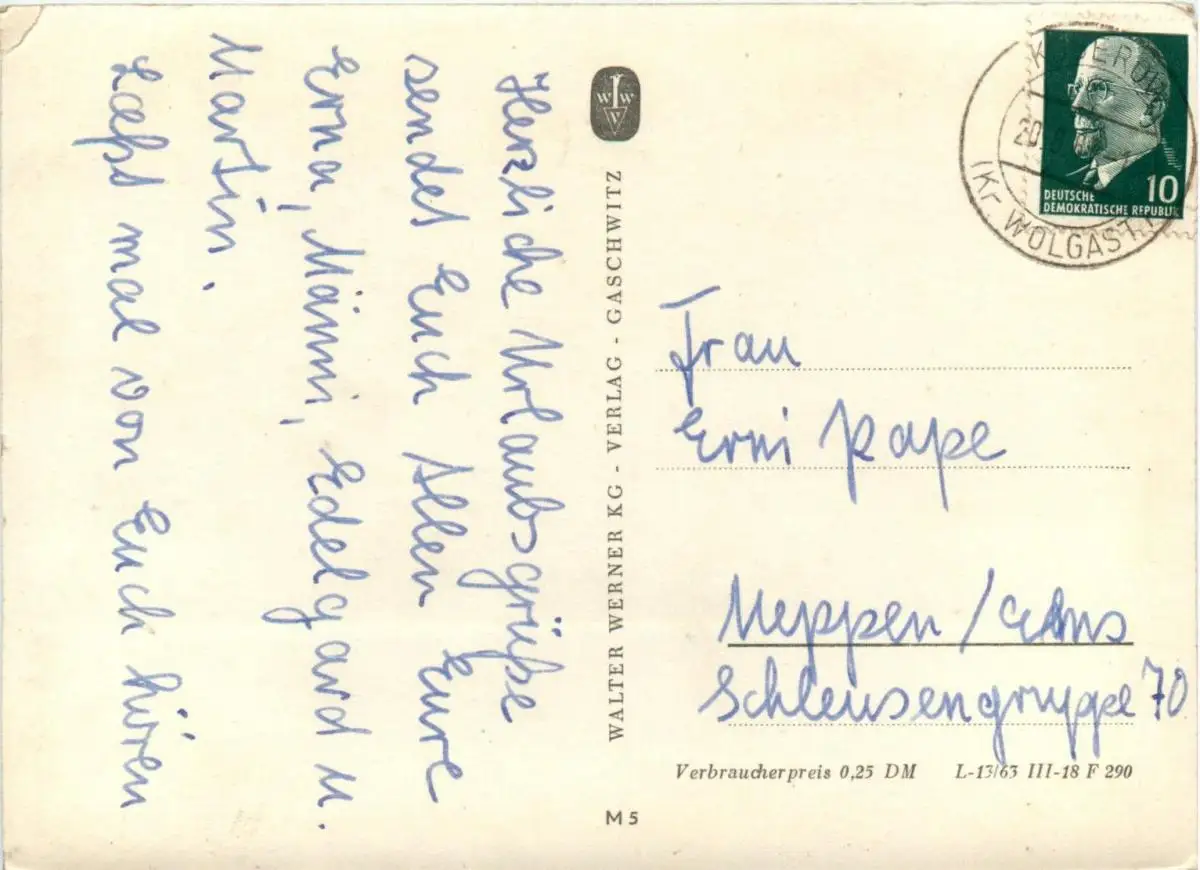 Herzliche Urlaubsgrüße
sendet Euch Allen Eure
Erna, Männi, Edelgard u.
Martin.
Laßt mal von Euch hören
WWV
WALTER WERNER KG - VERLAG - GASCHWITZ
M 5
DEUTSCHE
DEMOKRATISCHE REPUBLIK
10
(Kr. WOLGAST)
Frau
Erni Pape
Meppen / Ems
Schleusengruppe 70
Verbraucherpreis 0,25 DM L-13/63 III-18 F 290